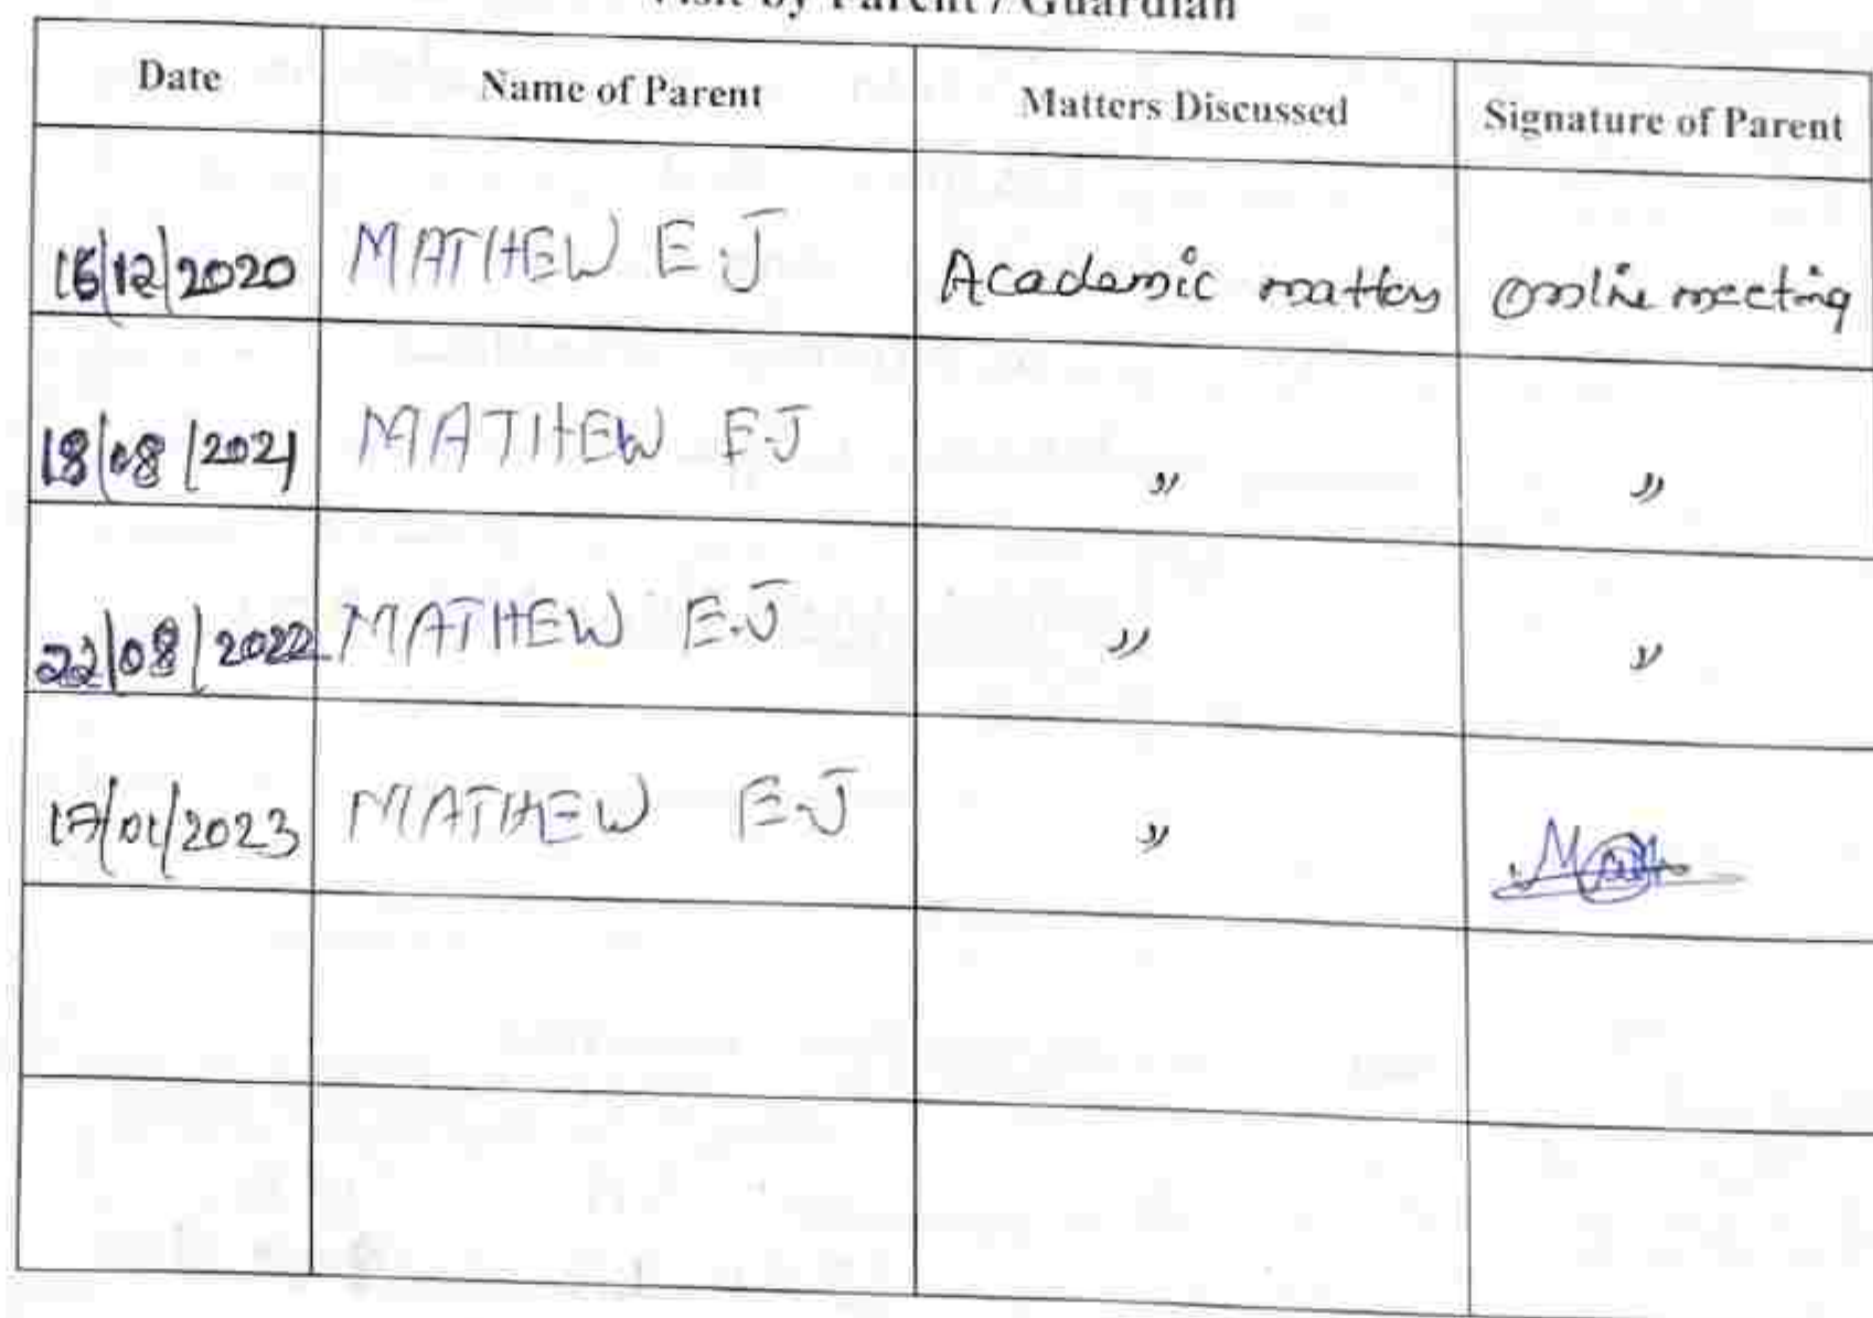 Visit by Parent / Guardian
Date Name of Parent Matters Discussed Signature of Parent
16/12/2020 MATHEW E J Academic matters Online meeting
18/08/2021 MATHEW E.J " "
22/08/2022 MATHEW E.J " "
17/01/2023 MATHEW E.J "